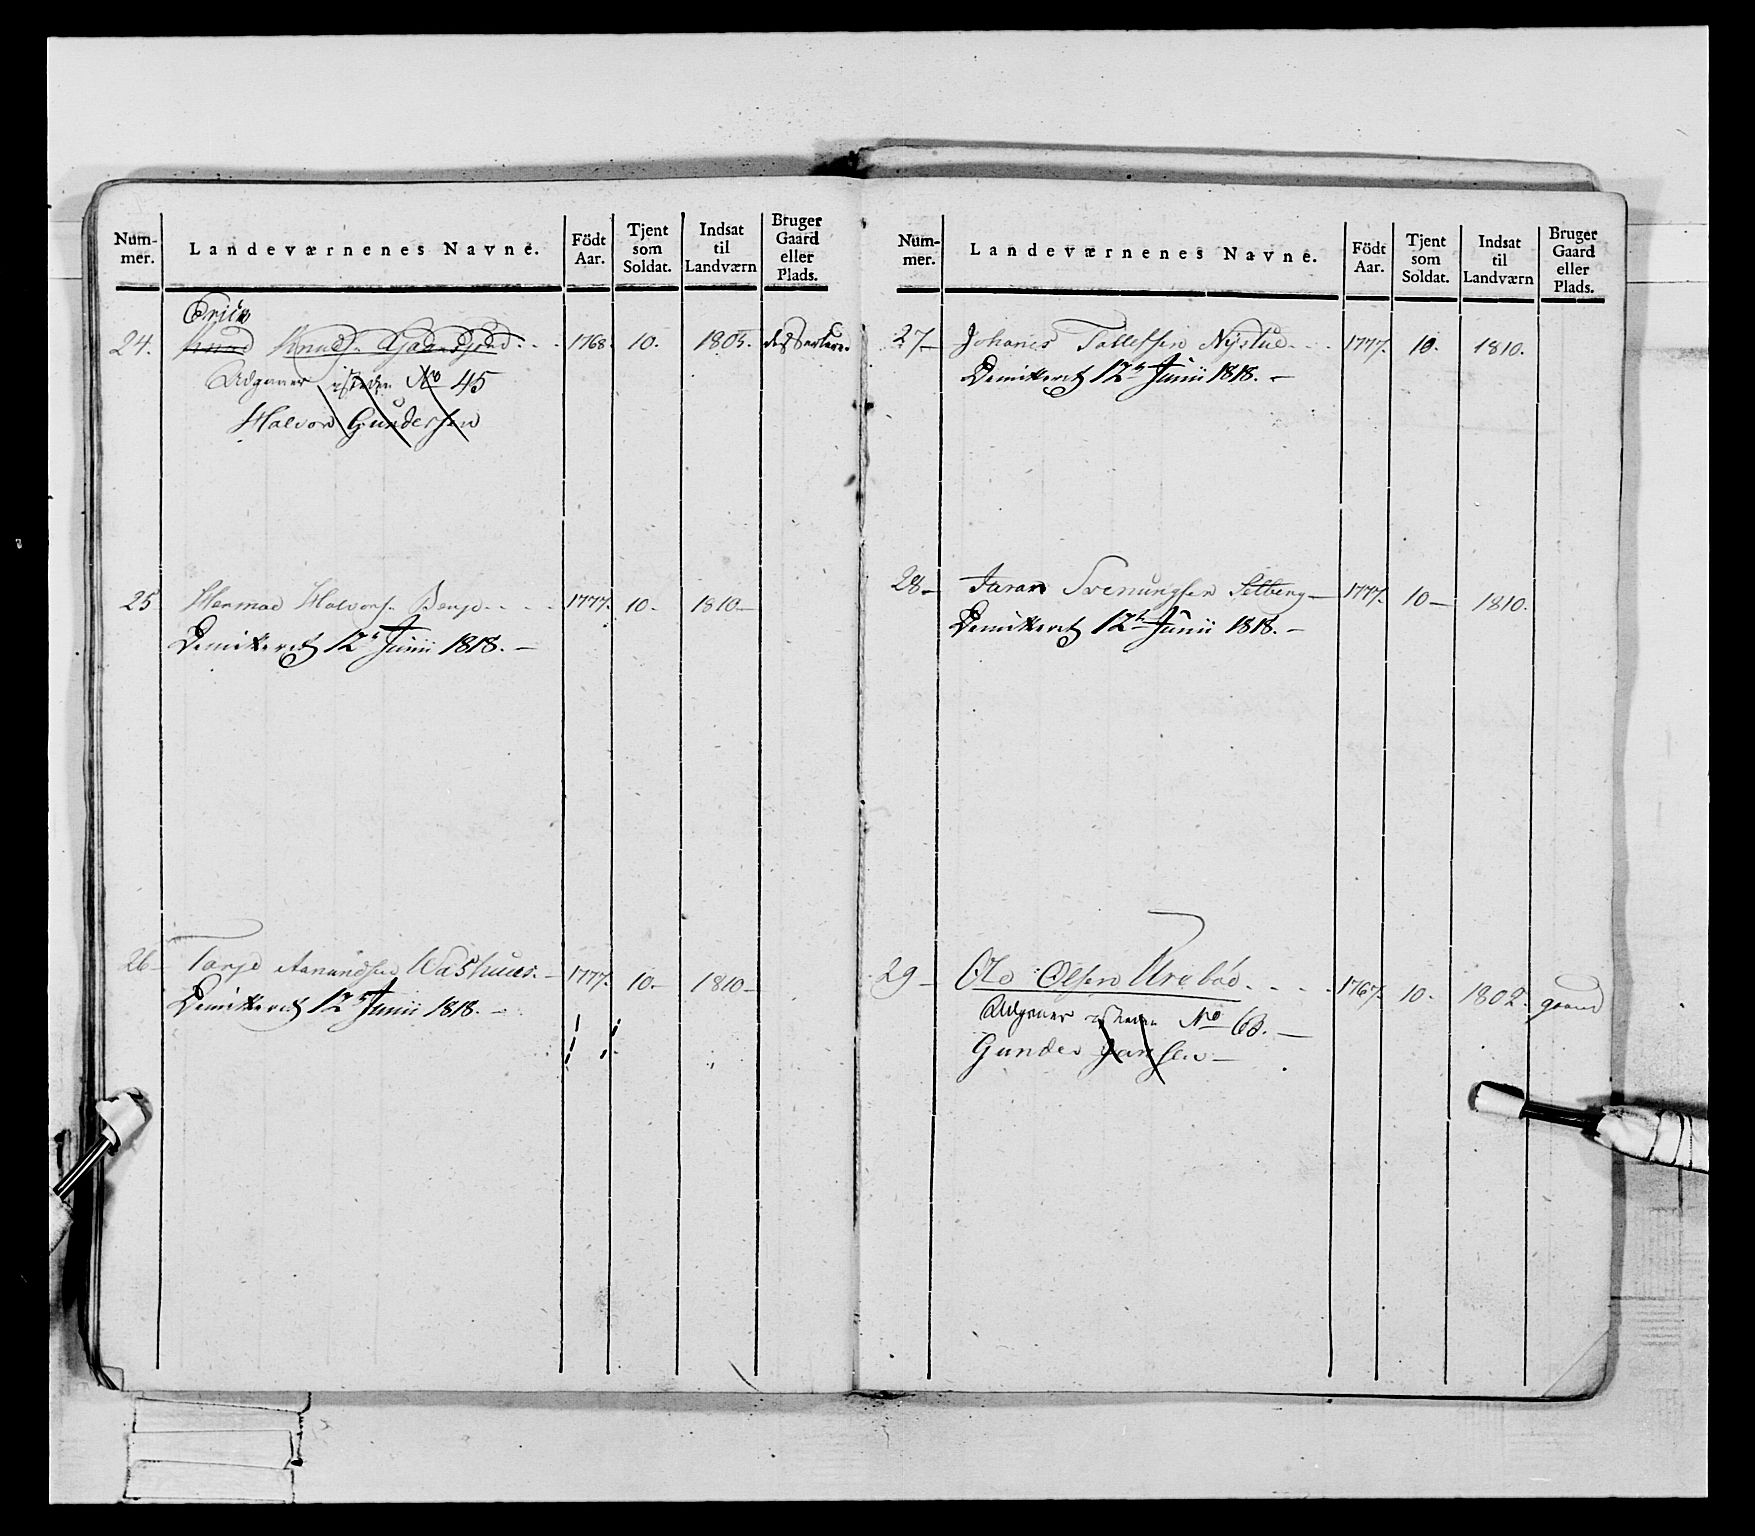 Num-
mer.
Landeværnenes Navne.
Födt
Aar.
Tjent
som
Soldat.
Indsat
til
Landværn
Bruger
Gaard
eller
Plads.
Erik
24. Knud Knuds. 1768. 10. 1805.
Udgaaer isteden No 45
Halvor Gundersen
25 Hermod Halvors. 1777. 10. 1810—
Demitteret 12te Junii 1818. —
26— Torje Aanundsen Washuus. — 1777. 10.— 1810—
Demitteret 12te Junii 1818. —
Num-
mer.
Landeværnenes Navne.
Födt
Aar.
Tjent
som
Soldat.
Indsat
til
Landværn
Bruger
Gaard
eller
Plads.
27— Johanes Tallefsen Nystue. 1777. 10. 1810.
Demitteret 12te Junii 1818. —
28— Svenungsen Selberg— 1777. 10— 1810.
Demitteret 12te Junii 1818. —
29— Ole Olsen Urebøe. 1767. 10. 1802. gaard
Udgaaer isteden No 63. —
Gunder Jansen—